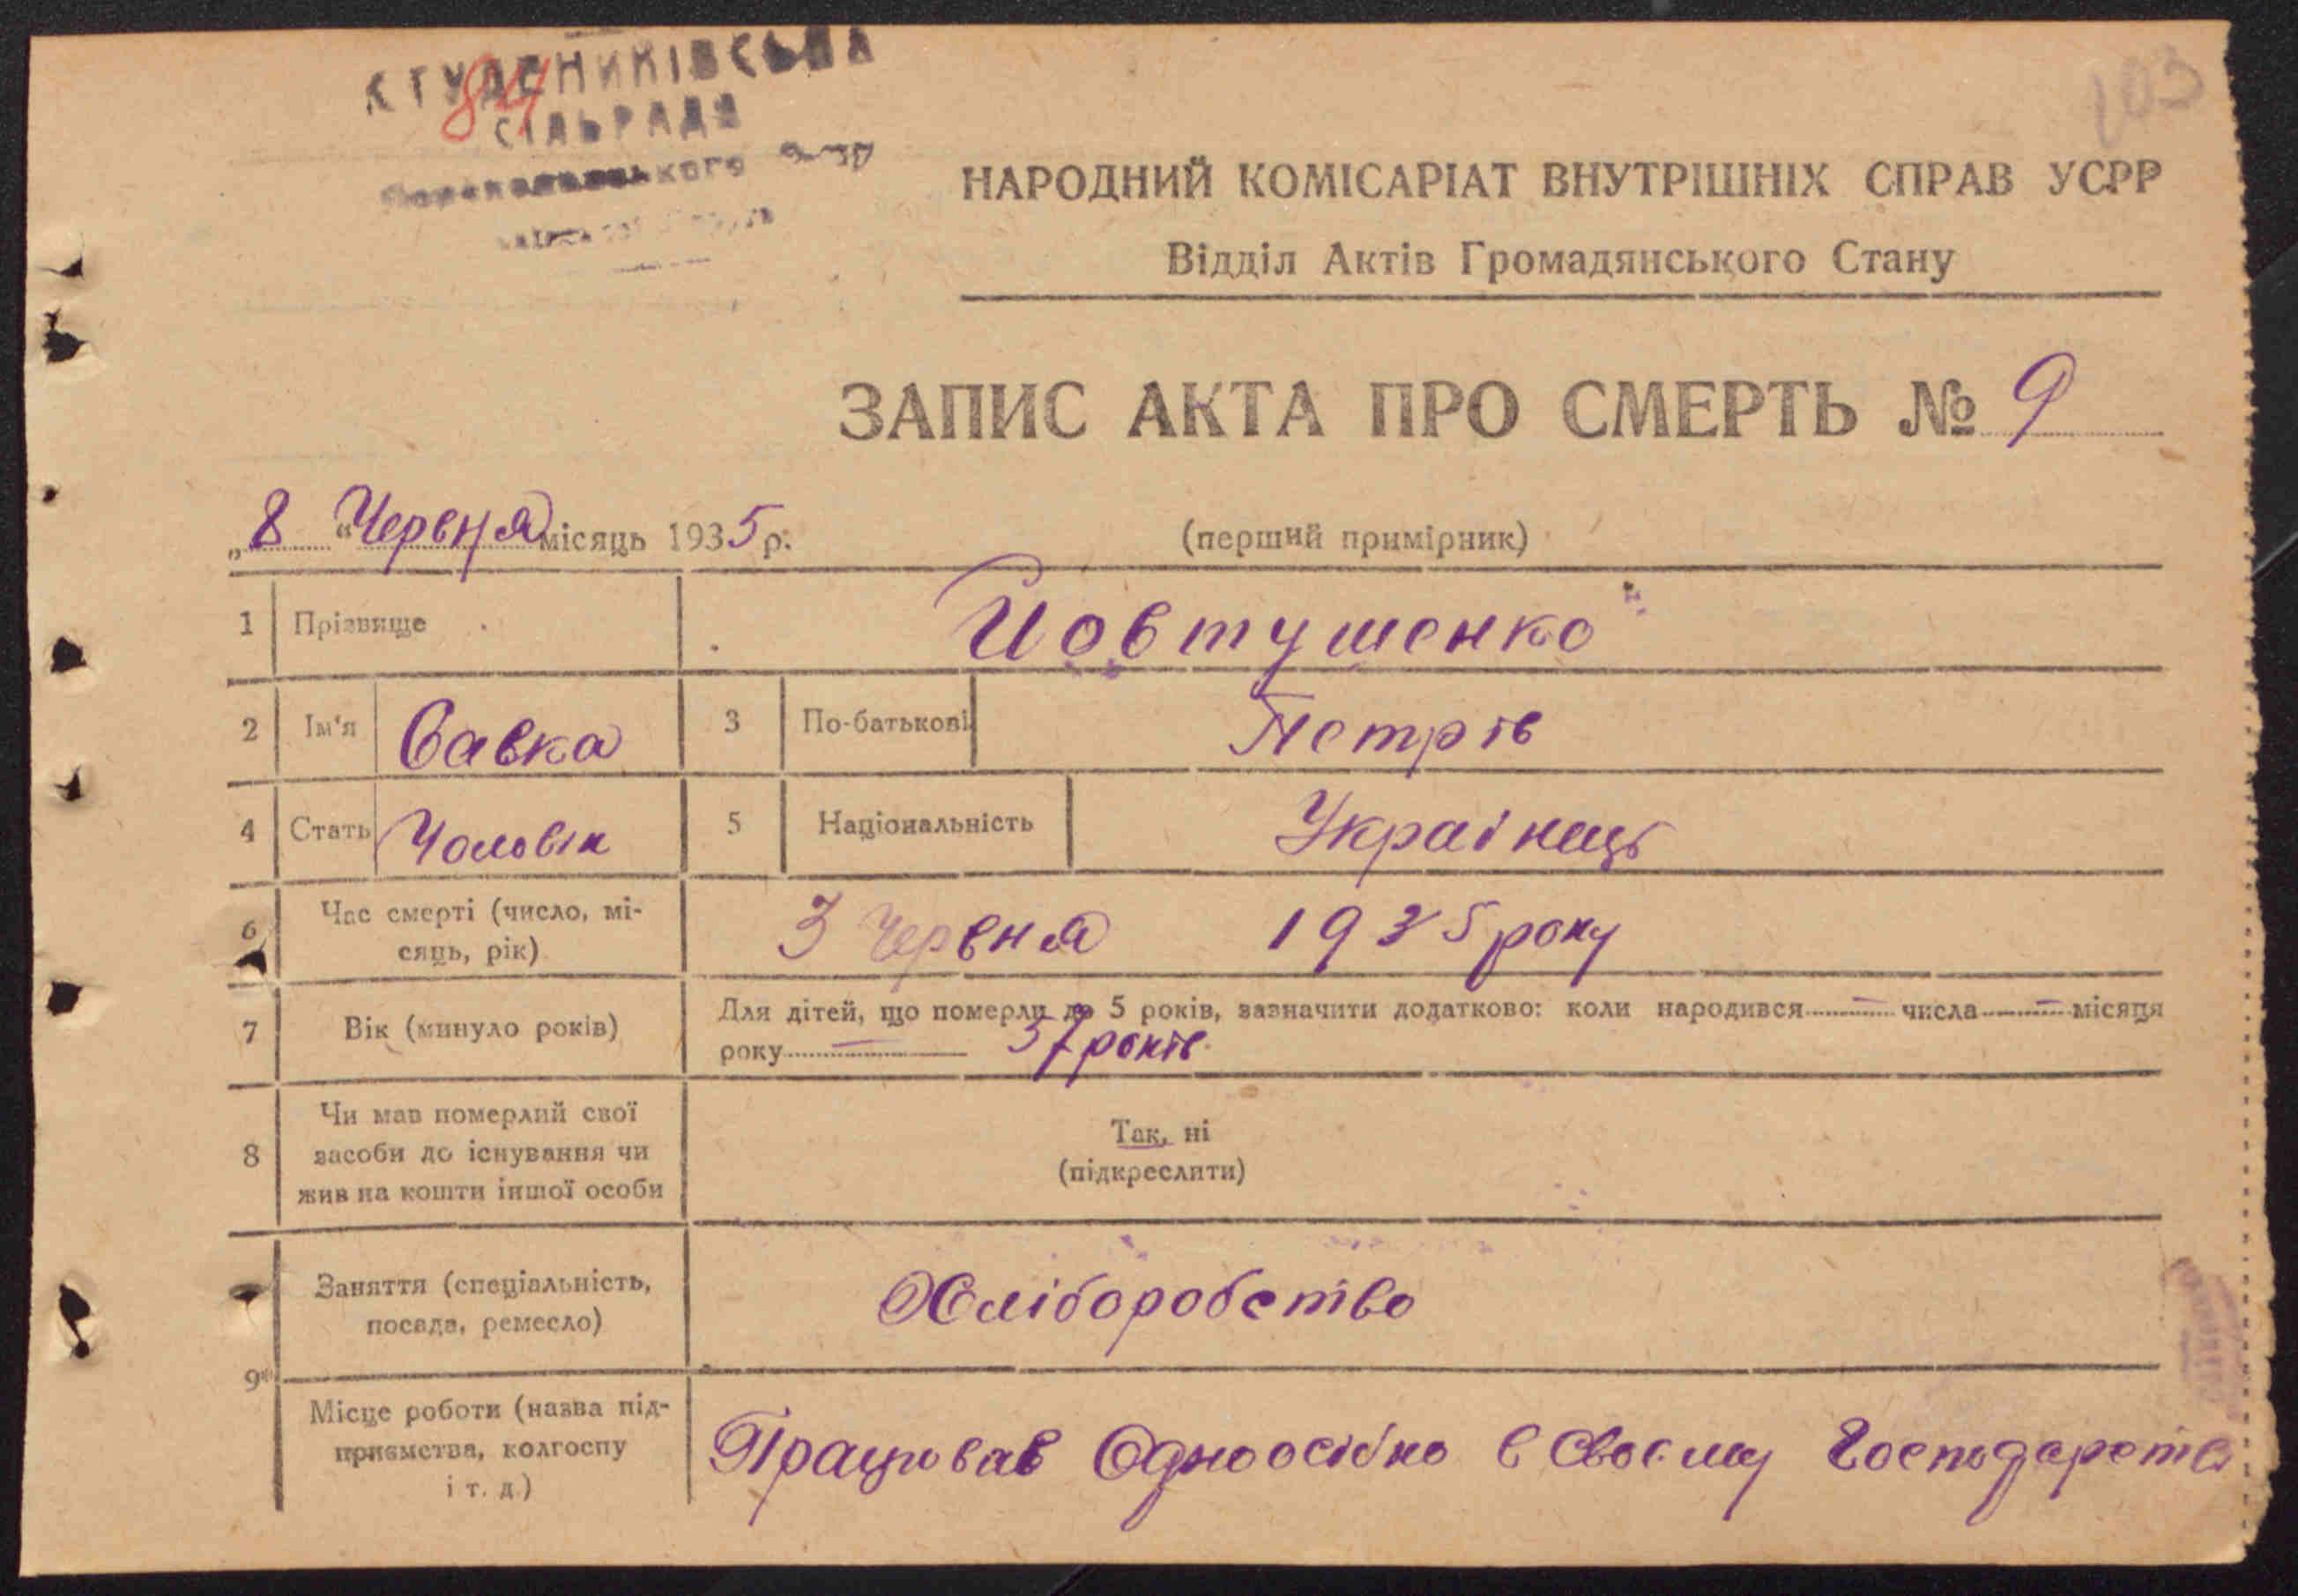 СТУДЕНИКІВСЬКА
84
СІЛЬРАДА
103
НАРОДНИЙ КОМІСАРІАТ ВНУТРІШНІХ СПРАВ УСРР
Відділ Актів Громадянського Стану
ЗАПИС АКТА ПРО СМЕРТЬ № 9
„8“ Червня місяць 1935 р.
(перший примірник)
1 Прізвище Йовтушенко
2 Ім'я Савка 3 По-батькові Петрів
4 Стать Чоловік 5 Національність Українець
6 Час смерті (число, мі-
сяць, рік) 3 Червня 1935 року
7 Вік (минуло років) Для дітей, що померли до 5 років, зазначити додатково: коли народився — числа — місяця
року — 37 років
8 Чи мав померлий свої
засоби до існування чи
жив на кошти іншої особи
Так, ні
(підкреслити)
9* Заняття (спеціальність,
посада, ремесло) Хліборобство
Місце роботи (назва під-
приємства, колгоспу
і т. д.) Працював Одноосібно в своєму Господарстві